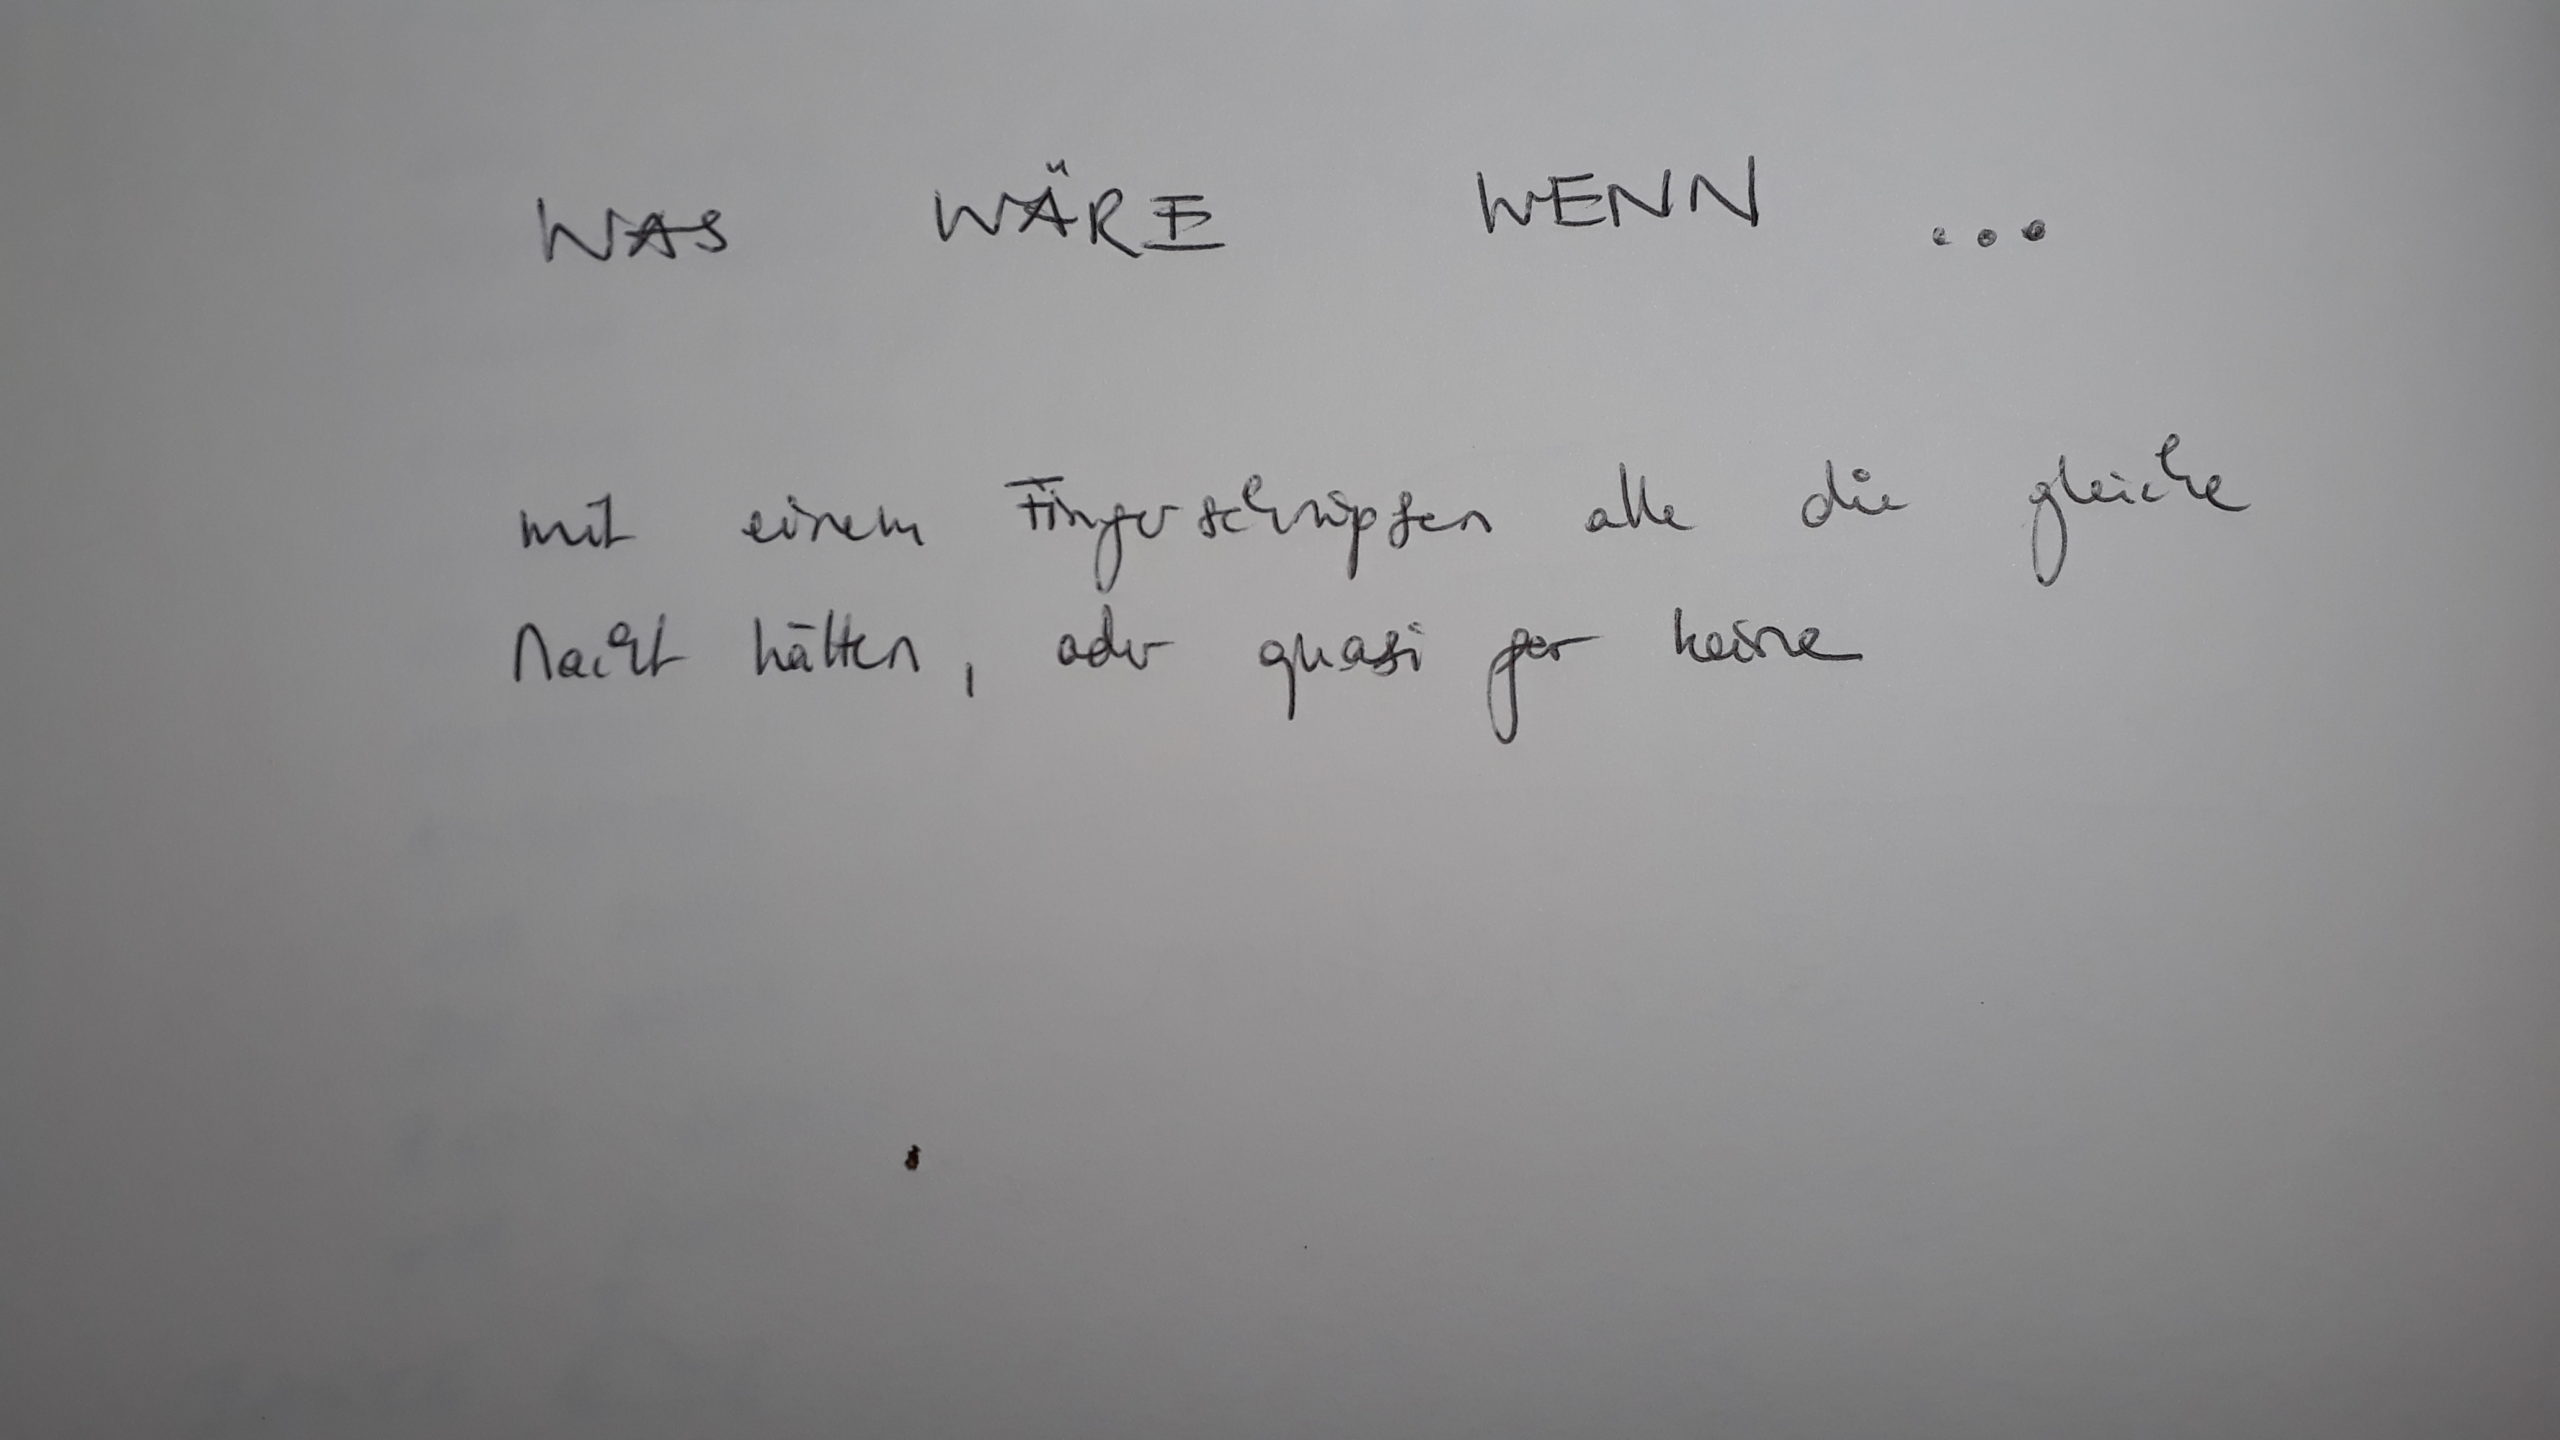 WAS WÄRE WENN ...
mit einem Fingerschnipsen alle die gleiche
Nacht hätten, oder quasi gar keine